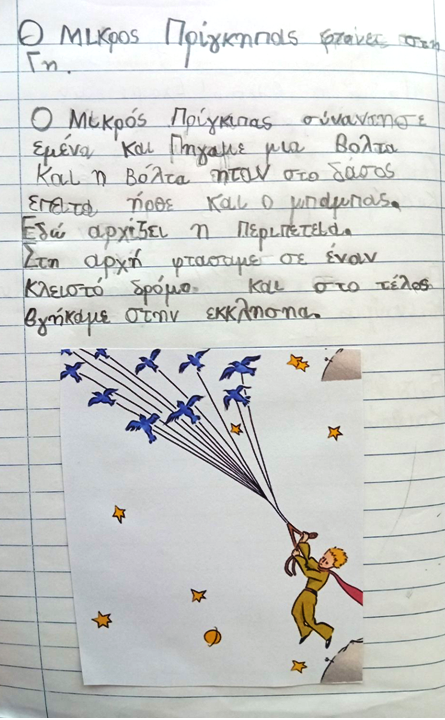 Ο Μικρος Πρίγκηπας φτανει στη
Γη.
Ο Μικρός Πρίγκιπας σύναντησε
εμένα και Πήγαμε μια Βολτα
Και η Βόλτα ηταν στο δάσος
επειτα ήρθε και ο μπαμπας.
Εδώ αρχίζει η Περιπετεια.
Στη αρχή φτασαμε σε έναν
κλειστό δρόμο και στο τέλος
βγήκαμε στην εκκλησηα.